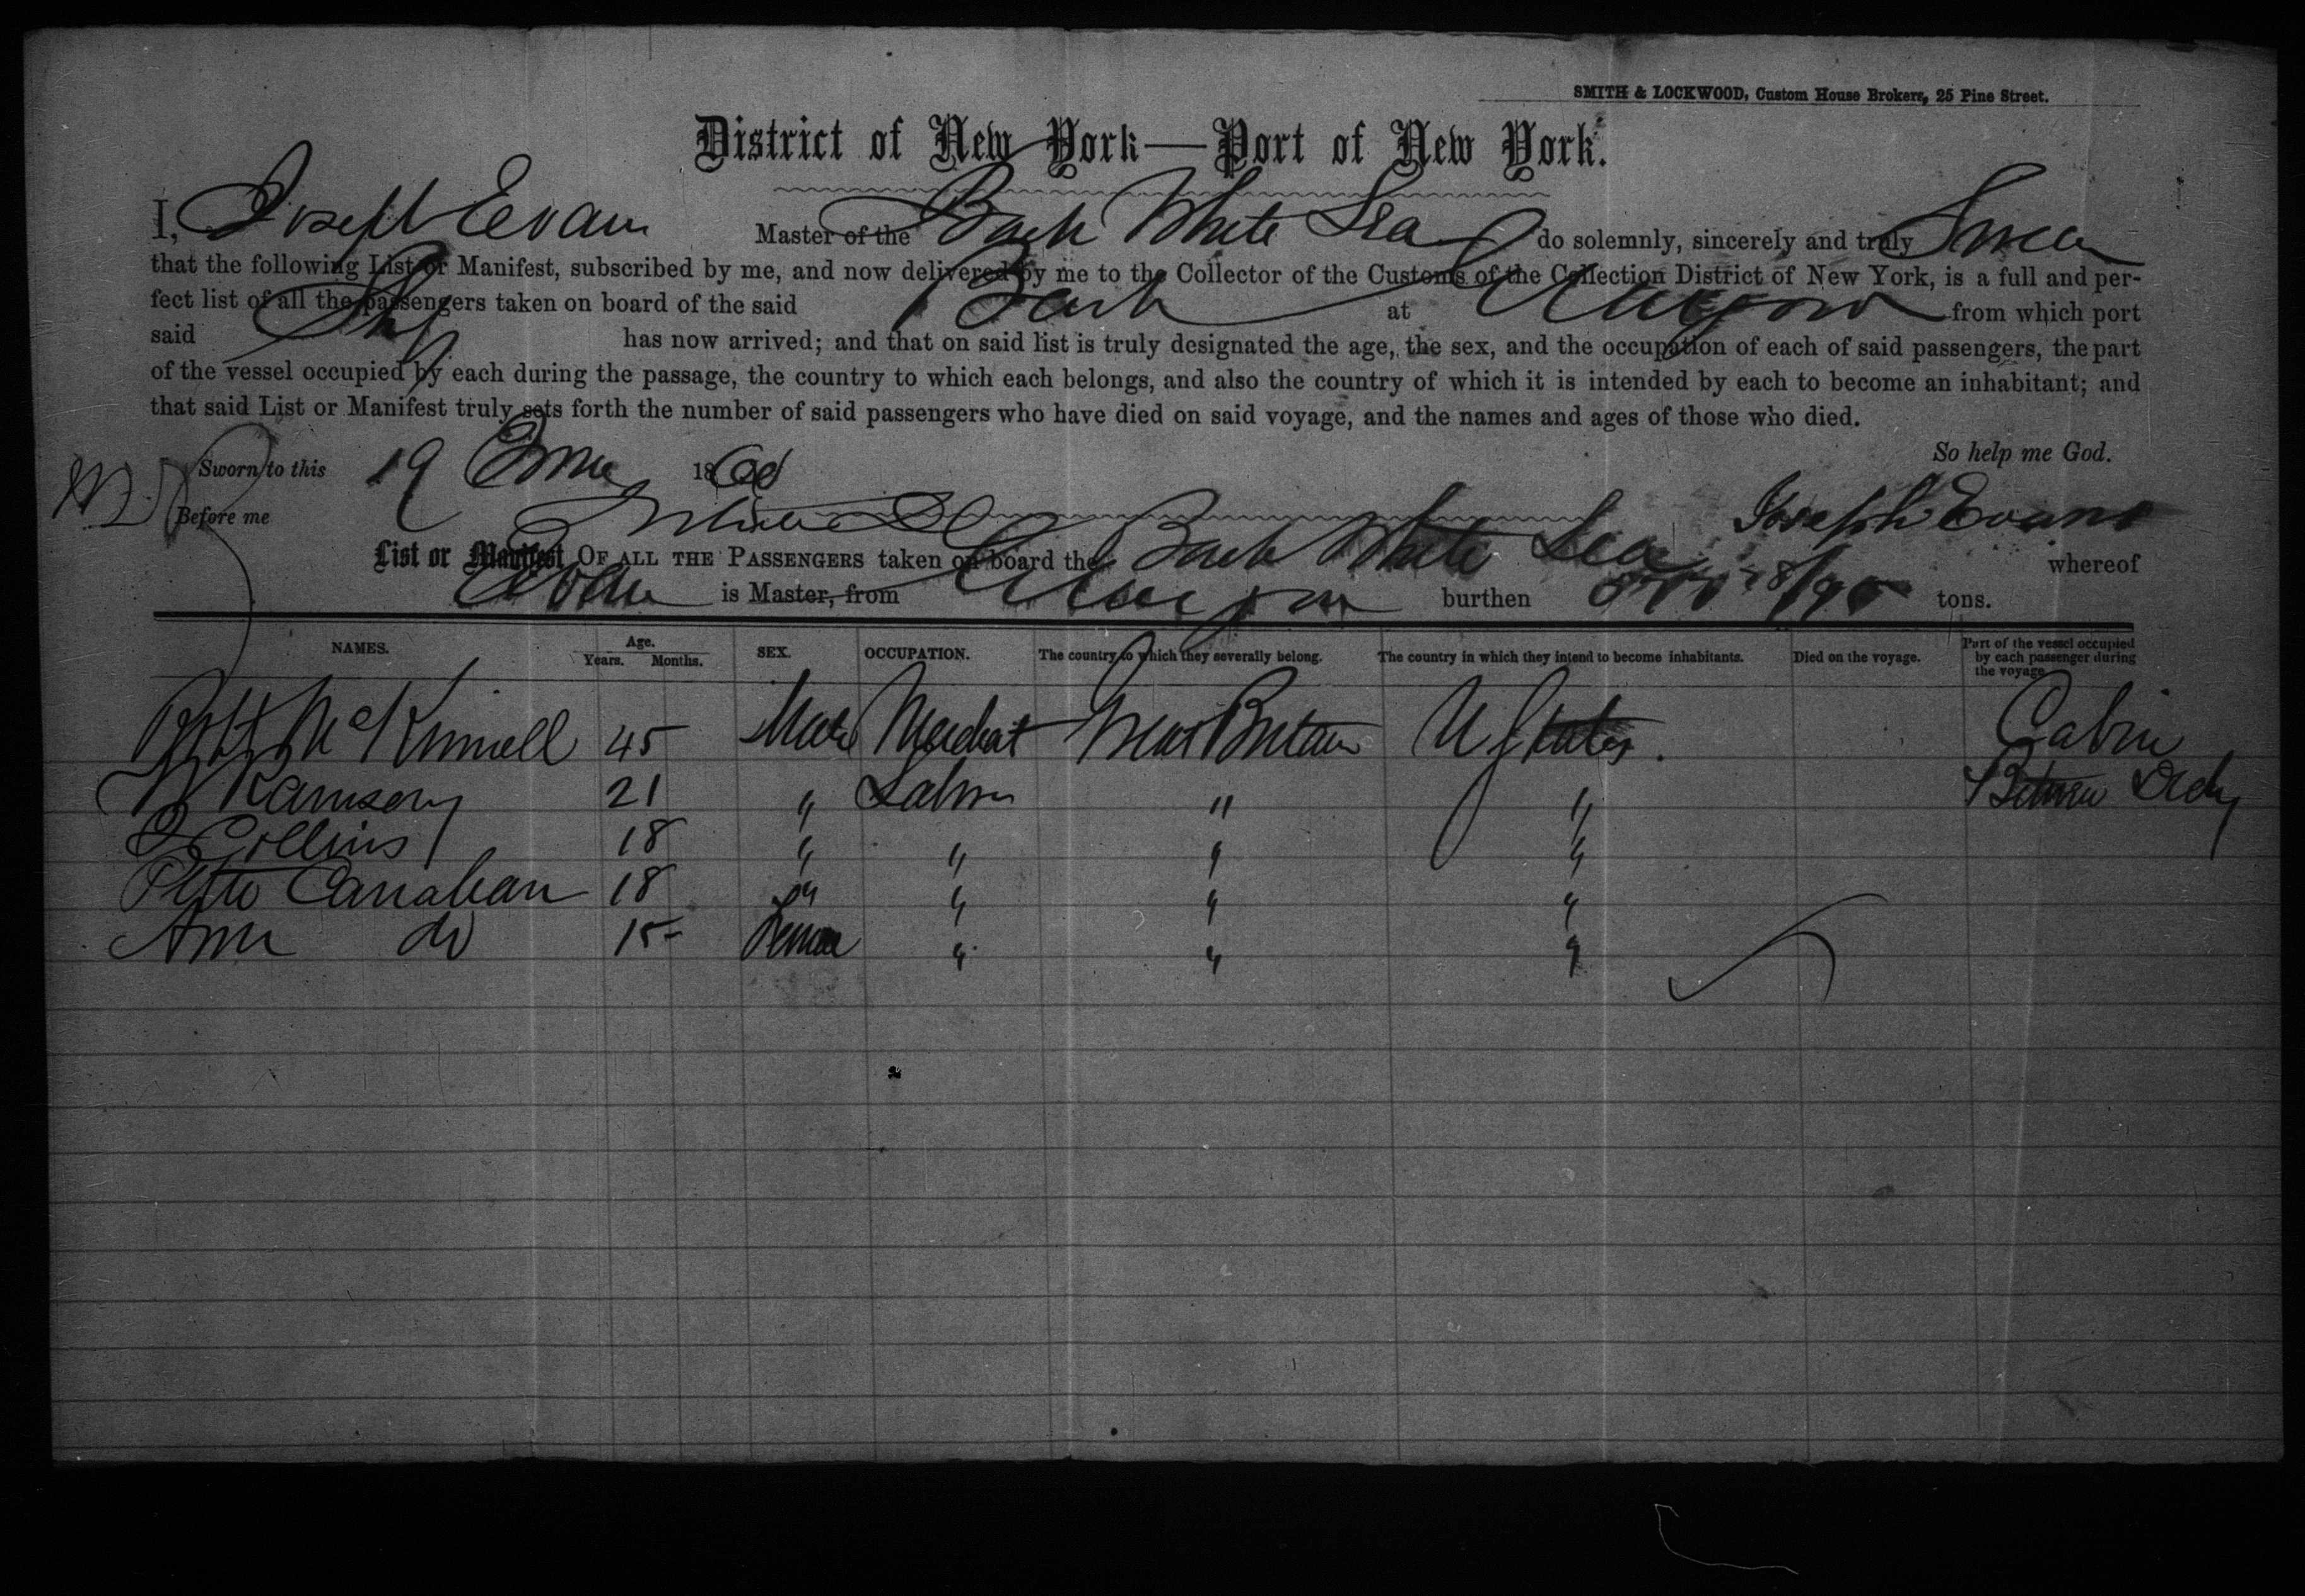 SMITH & LOCKWOOD, Custom House Brokers, 25 Pine Street.
District of New York—Port of New York.
I, Joseph Evans Master of the Bark White Sea do solemnly, sincerely and truly Swear
that the following List or Manifest, subscribed by me, and now delivered by me to the Collector of the Customs of the Collection District of New York, is a full and per-
fect list of all the passengers taken on board of the said Bark at Glasgow from which port
said Ship has now arrived; and that on said list is truly designated the age, the sex, and the occupation of each of said passengers, the part
of the vessel occupied by each during the passage, the country to which each belongs, and also the country of which it is intended by each to become an inhabitant; and
that said List or Manifest truly sets forth the number of said passengers who have died on said voyage, and the names and ages of those who died.
So help me God.
Sworn to this 19 June 1860
Before me Joseph Evans
List or Manifest OF ALL THE PASSENGERS taken on board the Bark White Sea whereof
Evans is Master, from Glasgow burthen tons.
NAMES. Age. Years. Months. SEX. OCCUPATION. The country to which they severally belong. The country in which they intend to become inhabitants. Died on the voyage. Part of the vessel occupied by each passenger during the voyage
Robt McKinnell 45 Male Merchant Great Britain U States. Cabin
W Ramsay 21 " Labor " " Between Decks
Collins 18 " " " "
Peter Canahan 18 " " " "
Ann do 15 Female " " "